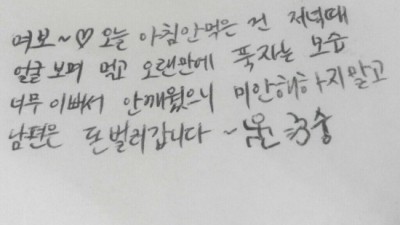 여보~♡ 오늘 아침안먹은 건 저녁때
얼굴 보며 먹고 오랜만에 푹자는 모습
너무 이뻐서 안깨웠으니 미안해하지말고
남편은 돈벌러갑니다~